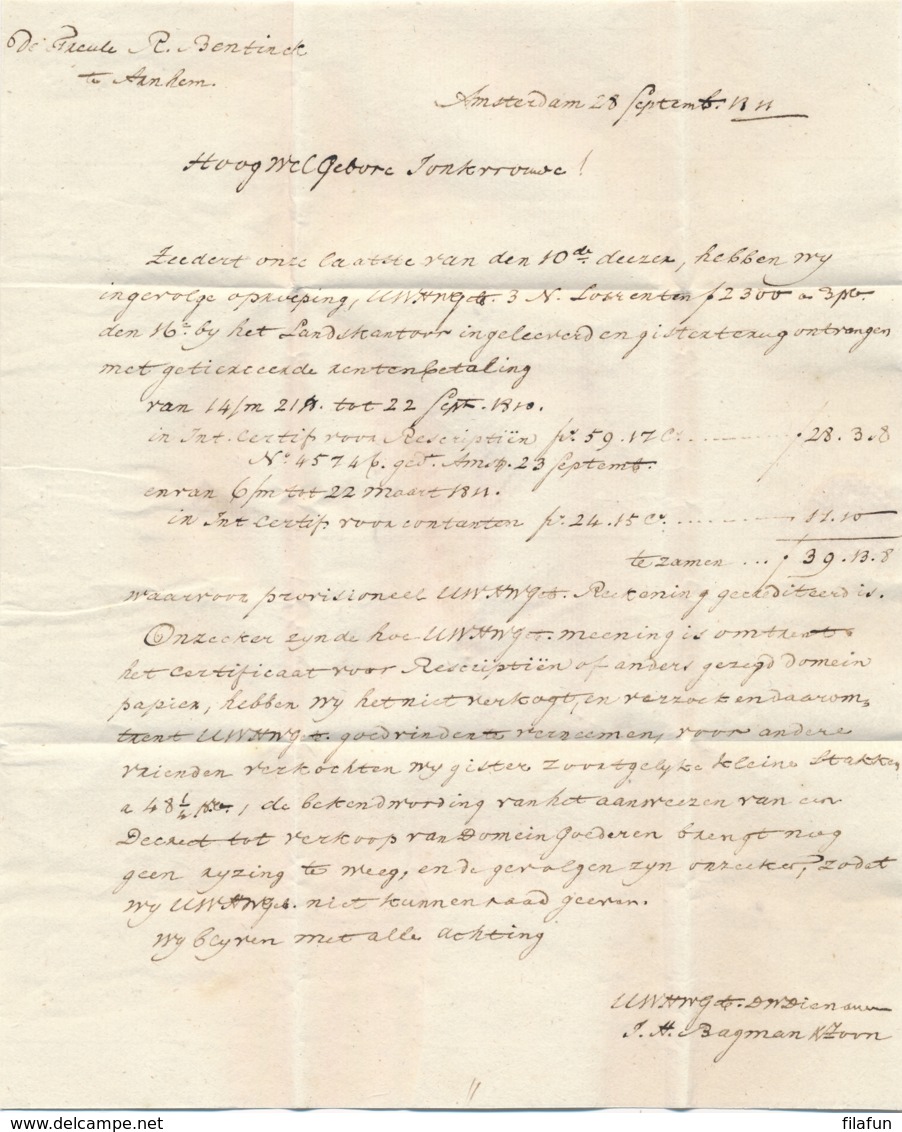 De Freule R. Bentinck
te Arnhem.
Amsterdam 28 Septemb. 1811
HoogWelGebore Jonkvrouwe!
Zeedert onze laatste van den 10de deezer, hebben wy
ingevolge oproeping, UWHWGeb. 3 N. Losrenten ƒ2300 a 3pCt.
den 16e by het Landskantoor ingeleeverd en gister terug ontvangen
met getiereerde rentenbetaling
van 14/m 21 tot 22 Sept. 1810.
in Int. Certif voor Rescriptiën fr. 59.17 Cs. ƒ 28.3.8
No. 4574 ged. Amst. 23 Septemb.
en van 6/m tot 22 Maart 1811.
in Int Certif voor contanten fr. 24.15 Cs. 11.10
te zamen ... ƒ 39.13.8
waarvoor provisioneel UWHWGeb. Reekening gecrediteerd is.
Onzeeker zynde hoe UWHWGeb. meening is omtrent
het Certificaat voor Rescriptiën of anders gezegd domein
papier, hebben wy het niet verkogt, en verzoeken daarom-
trent UWHWGeb. goedvindente verneemen, voor andere
vrienden verkochten wy gister zoortgelyke kleine stukken
a 48¼ pCt., de bekendwording van het aanweezen van een
Decreet tot verkoop van Domein Goederen brengt nog
geen ryzing te weeg, en de gevolgen zyn onzeeker, zodat
wy UWHWGeb. niet kunnen raad geeven.
Wy blyven met alle achting
UWHWGeb. DWDienaaren
J. H. Bagman & Zoon
filafun
delcampe.net